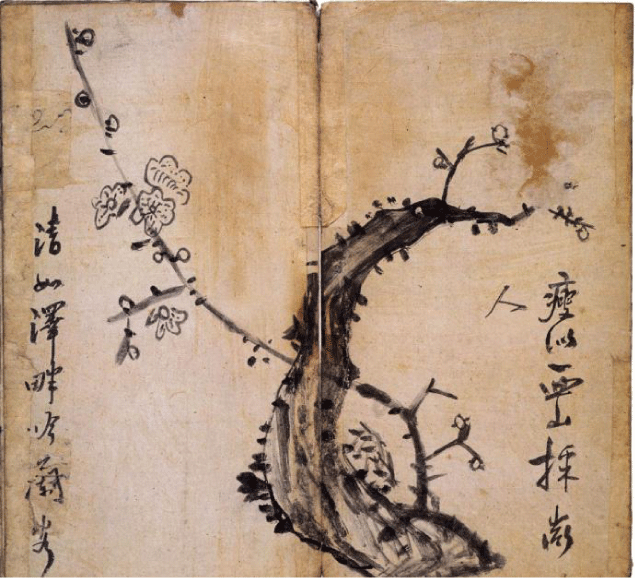 瘦似西山採薇
人
清如澤畔吟蘭客